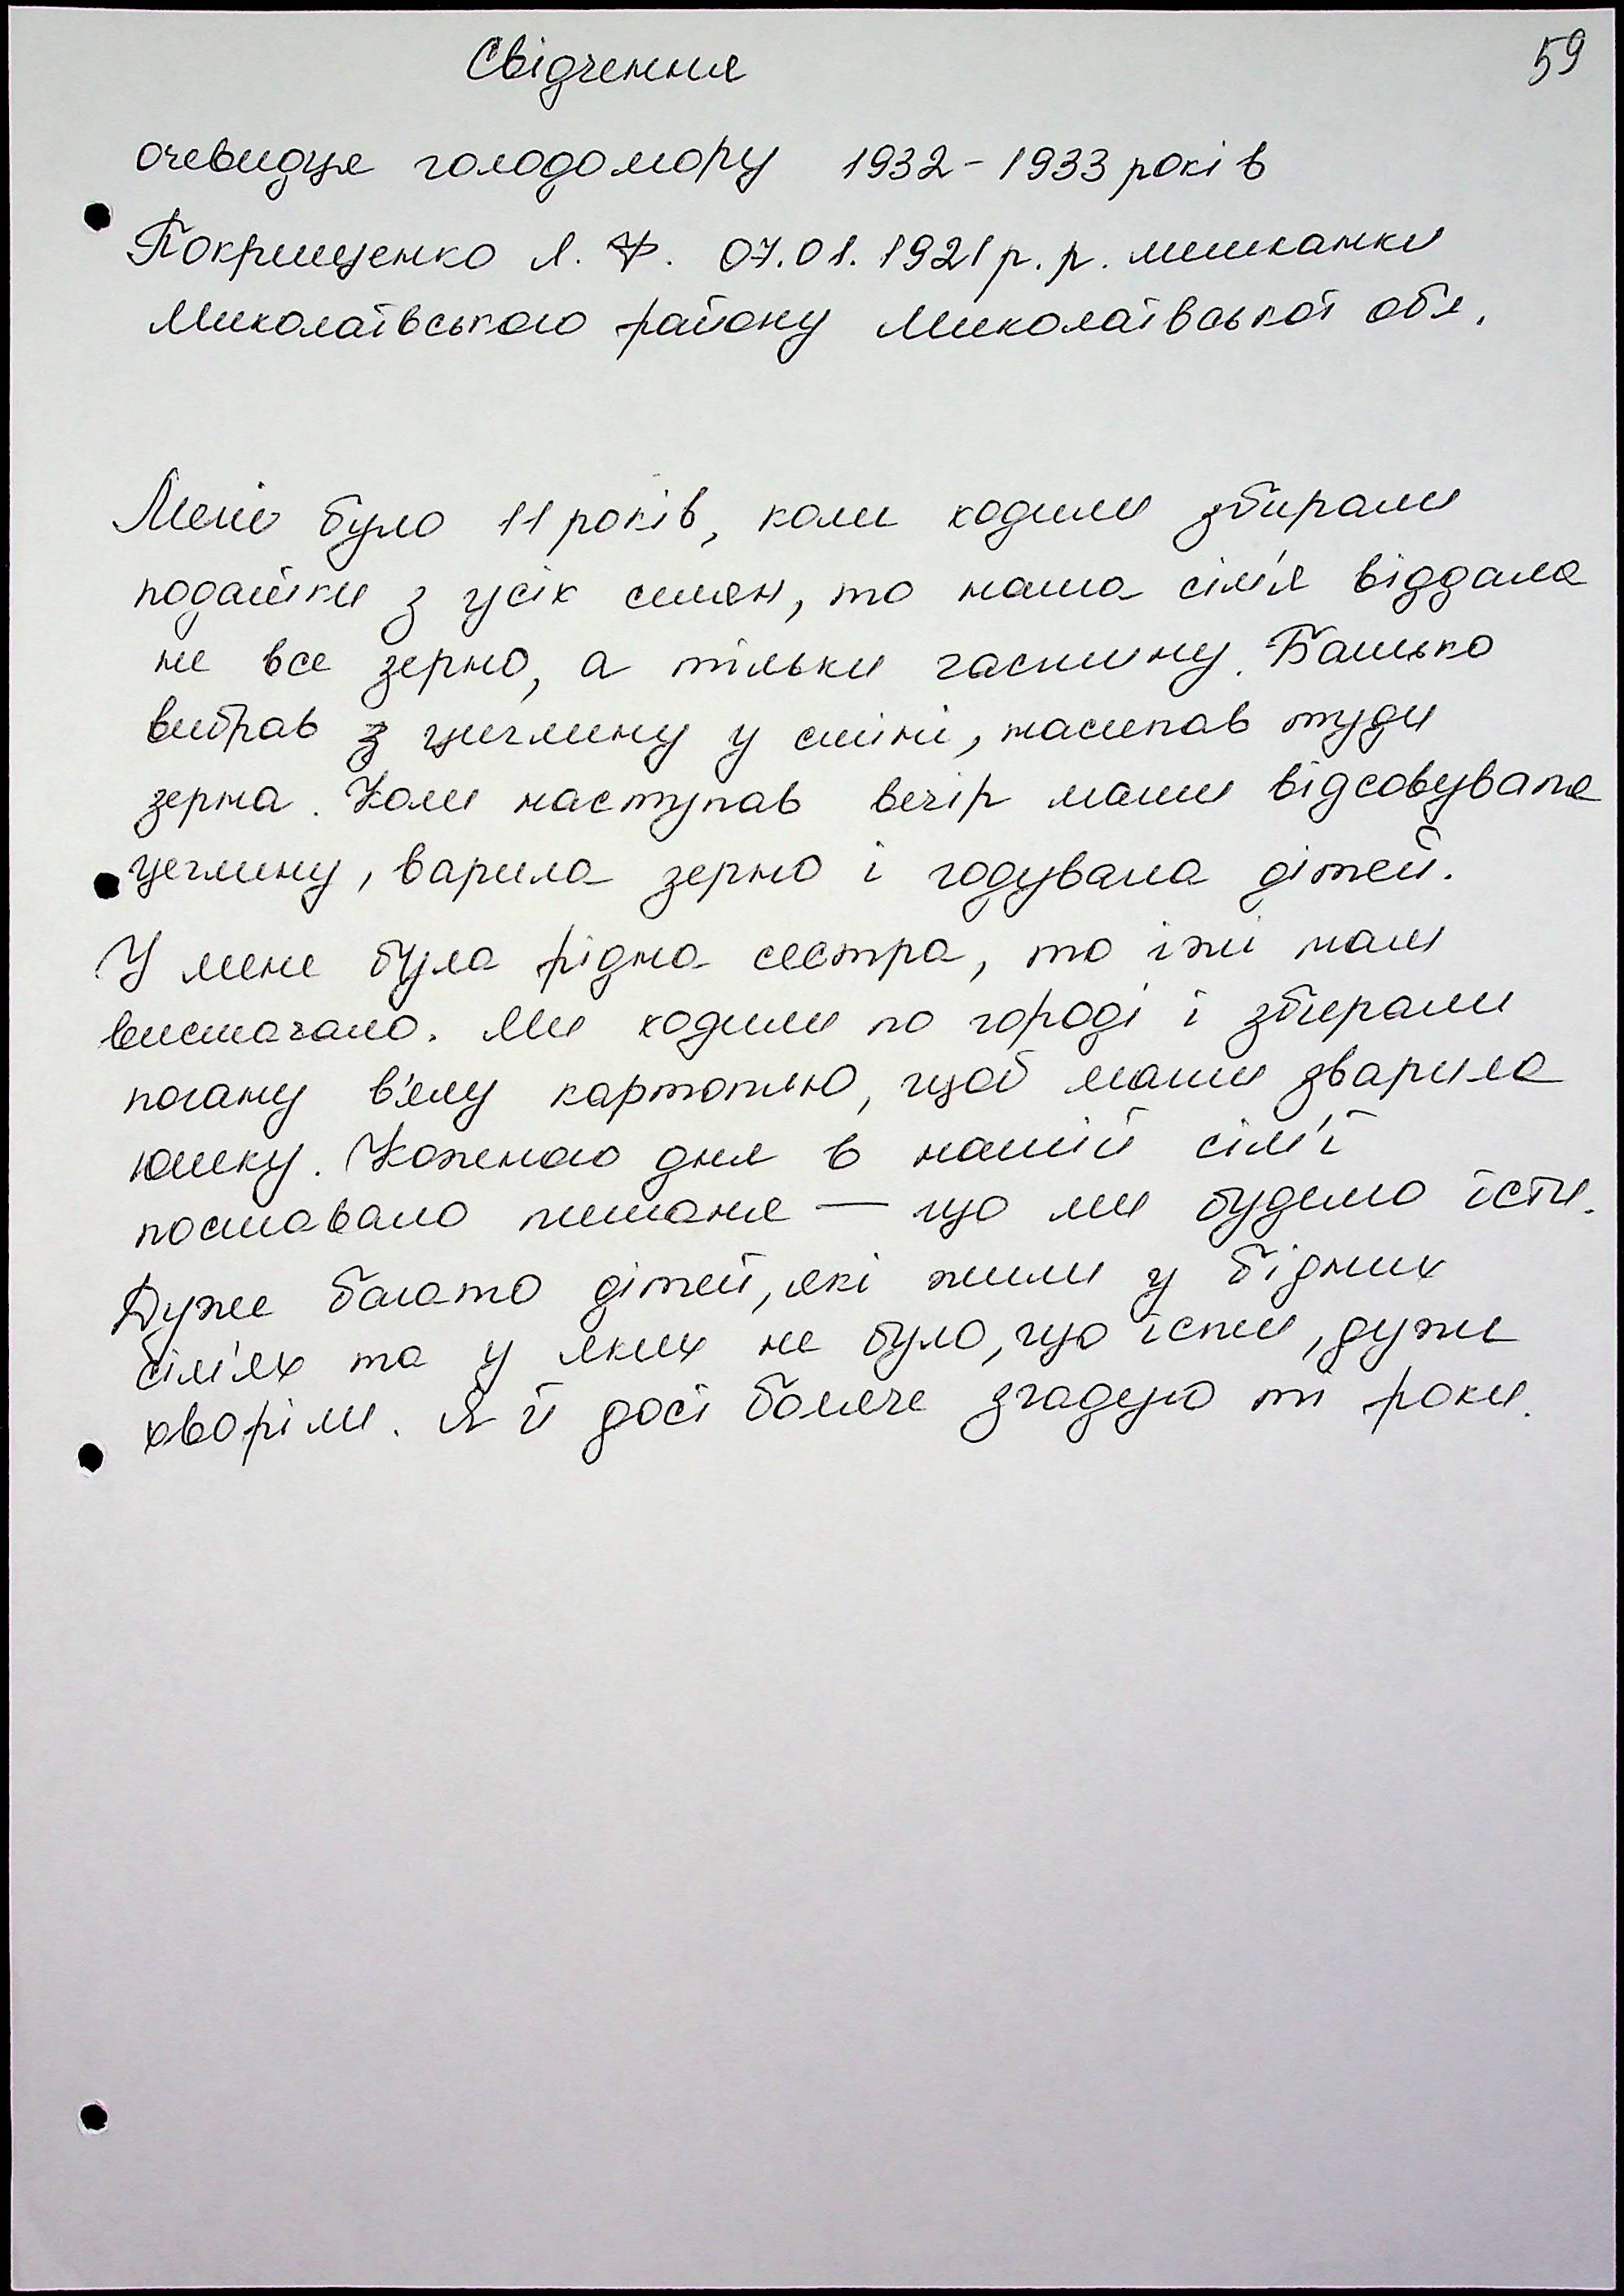 Свідчення
59
очевидця голодомору 1932-1933 років
Покрищенко Л. Ф. 07.01.1921 р.р. мешканки
Миколаївського району Миколаївської обл.
Мені було 11 років, коли ходили збирали
податки з усіх селян, то наша сім'я віддала
не все зерно, а тільки частину. Батько
вибрав з цеглину у стіні, насипав туди
зерна. Коли наступав вечір мати відсовувала
цеглину, варила зерно і годувала дітей.
У мене була рідна сестра, то їжі нам
вистачало. Ми ходили по городі і збирали
погану в'ялу картоплю, щоб мати зварила
юшку. Кожного дня в нашій сім'ї
поставало питання — що ми будемо їсти.
Дуже багато дітей, які жили у бідних
сім'ях та у яких не було, що їсти, дуже
хворіли. Я й досі боляче згадую ті роки.